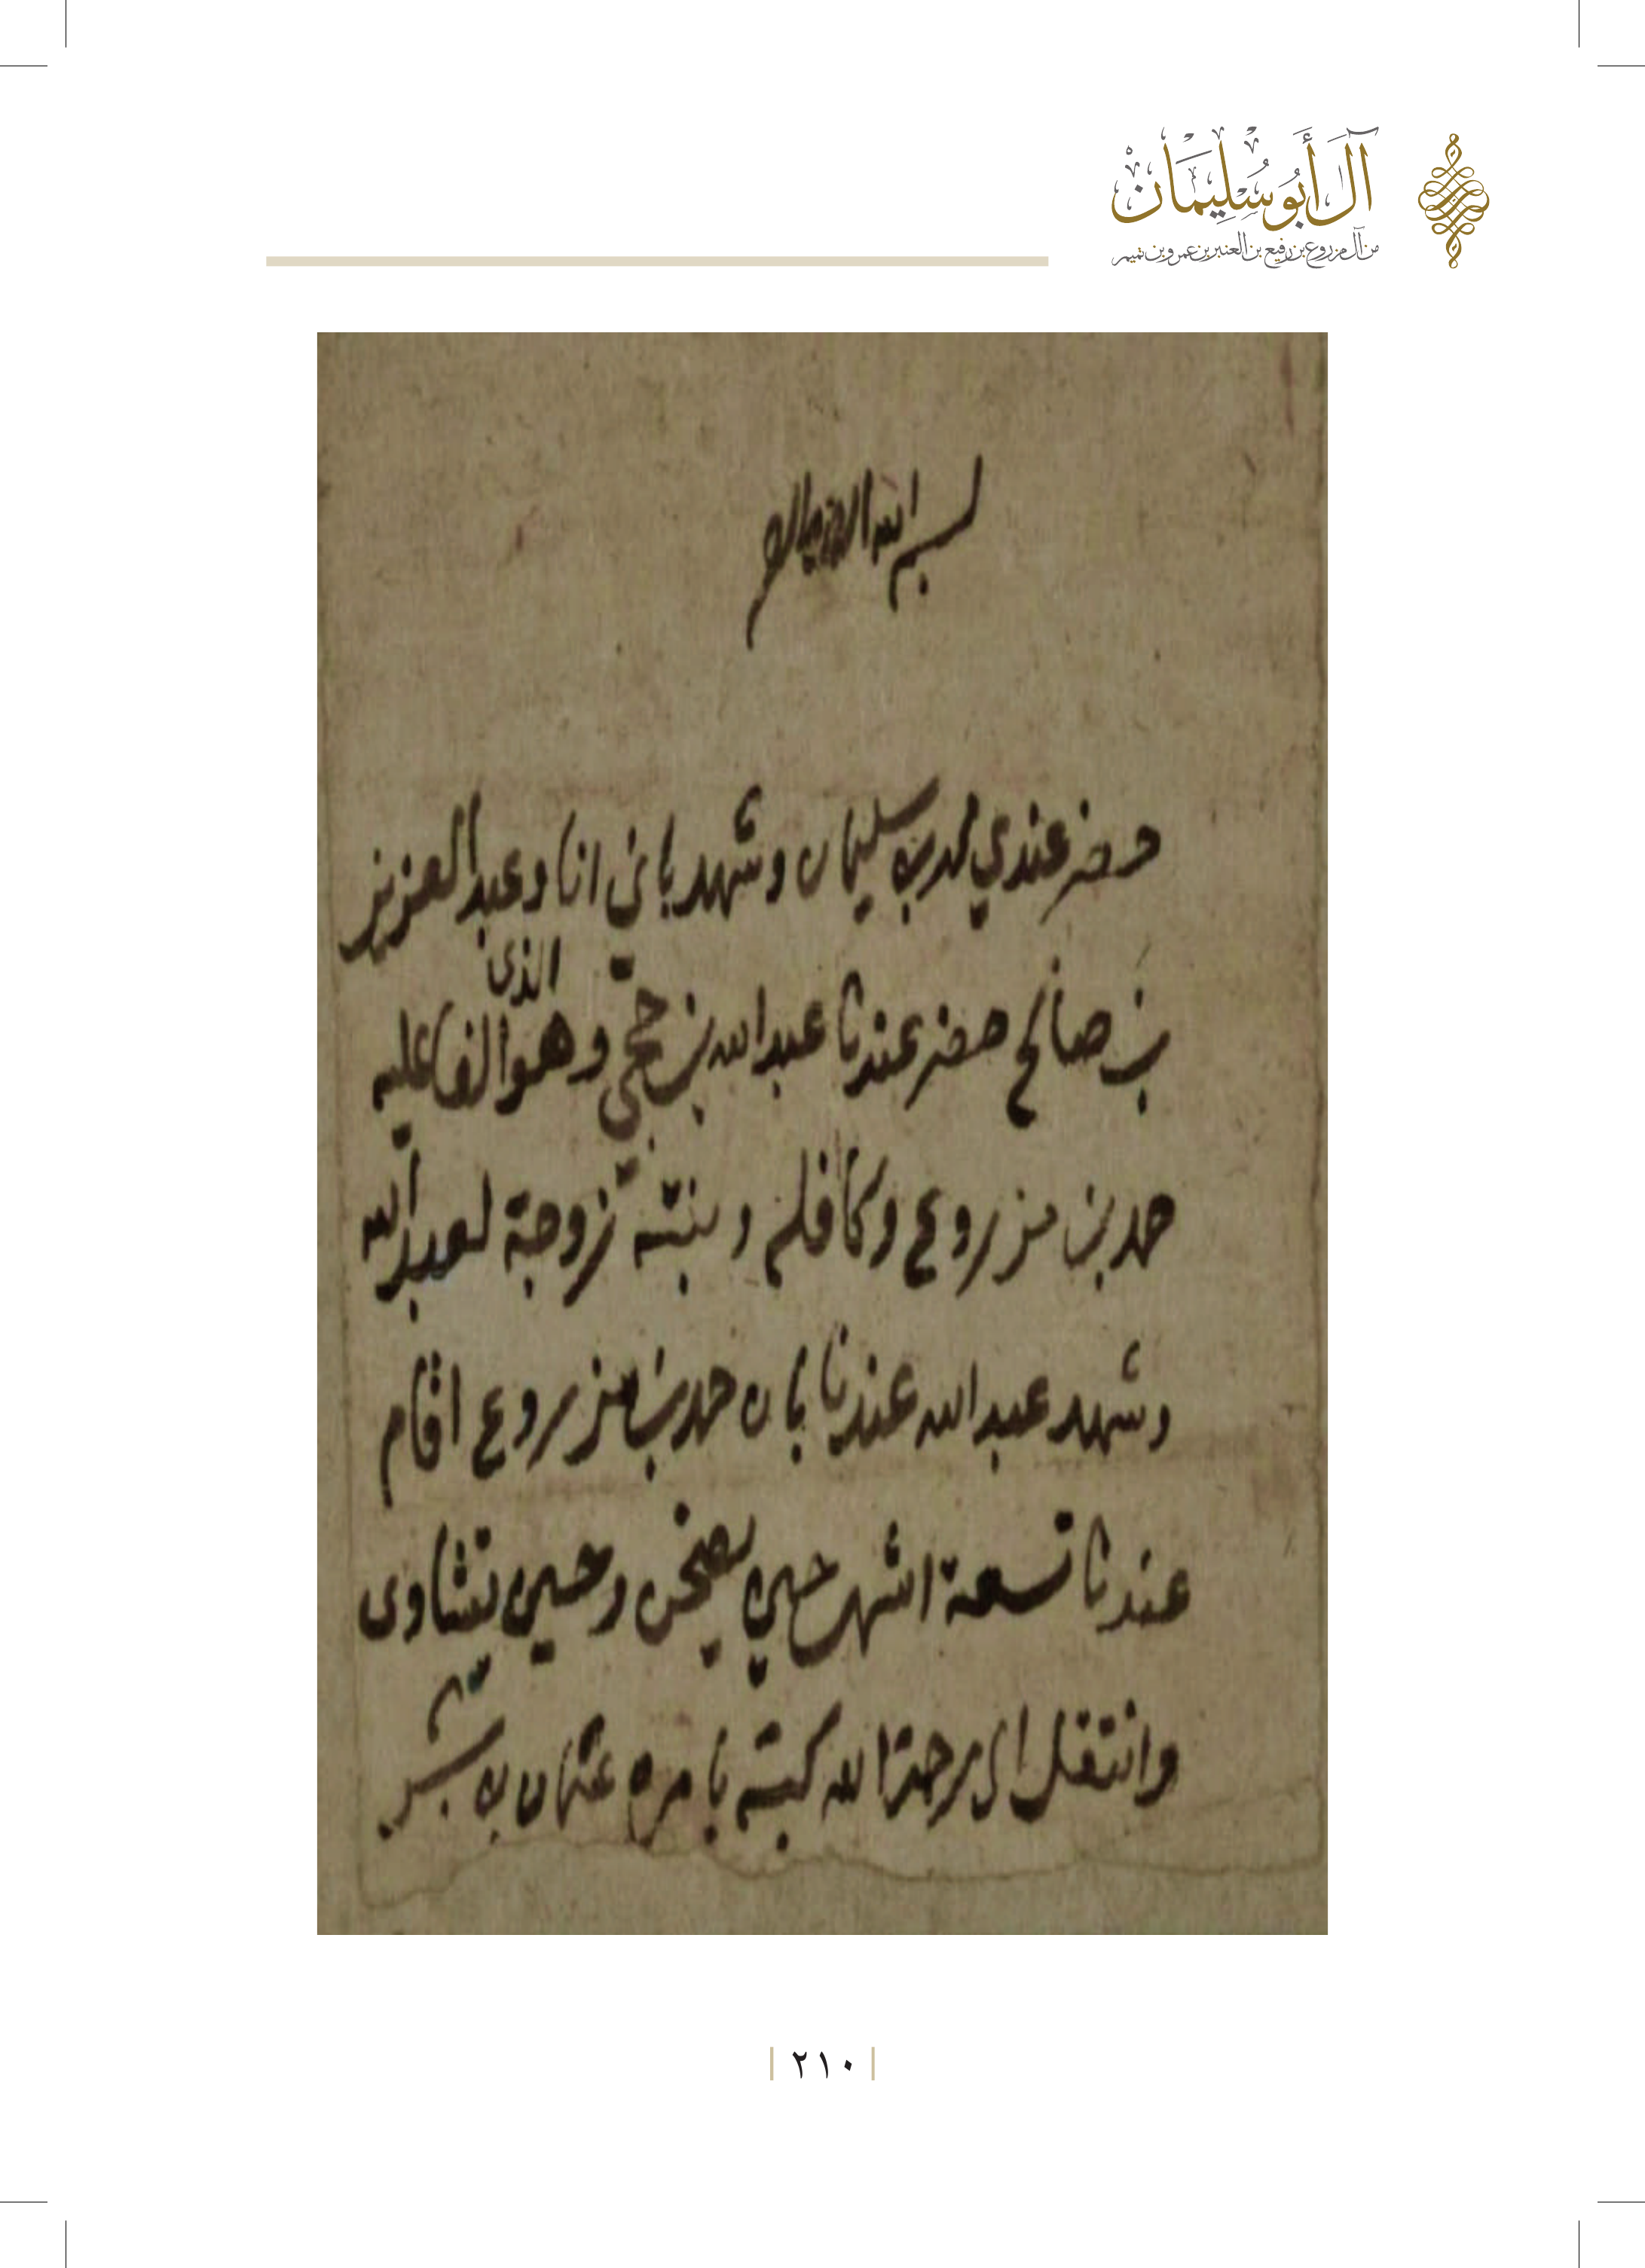 آل أبو سليمان
من آل مزروع بن رفيع بن العنبر بن عمرو بن تميم
بسم الله الرحمن الرحيم
حضر عندي محمد بن سليمان وشهد باني انا وعبد العزيز
بن صالح حضر عندنا عبد الله بن حجي وهو الذي
حمد بن مزروع وكافله وبنته زوجة لعبد الله
وشهد عبد الله عندنا بان حمد بن مزروع اقام
عندنا تسعة اشهر حين يصخن وحين يتشاوى
وانتقل الى رحمة الله كبته بامره عثمان بن
٢١٠